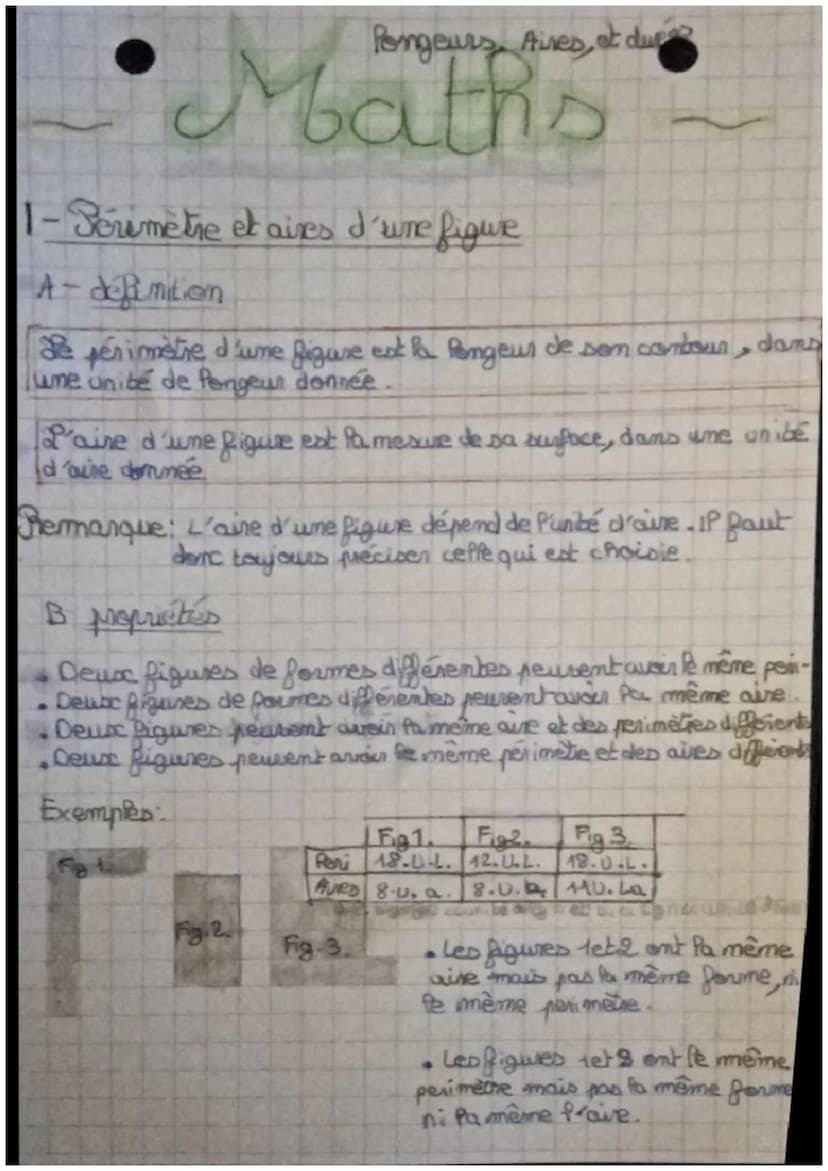 Longeurs, Aires, et durée
~ Maths ~
1 - Périmètre et aires d'une figure
A - définition
Le périmètre d'une figure est la longeur de son contour, dans
une unité de longeur donnée.
L'aire d'une figure est la mesure de sa surface, dans une unité
d'aire donnée.
Remarque: L'aire d'une figure dépend de l'unité d'aire. Il faut
donc toujours préciser celle qui est choisie.
B propriétés
• Deux figures de formes différentes peuvent avoir le même peri-
• Deux figures de formes différentes peuvent avoir la même aire.
• Deux figures peuvent avoir la même aire et des perimètres différents
• Deux figures peuvent avoir le même périmètre et des aires différents
Exemples:
Fig 1. Fig 2. Fig 3.
Peri 18.U.L. 12.U.L. 18.U.L.
Aires 8.U.a. 8.U.a. 11U.La
Fig 1.
Fig.2.
Fig-3.
• Les figures 1et2 ont la même
aire mais pas la même forme, ni
le même perimètre.
• Les figures 1et3 ont le même
perimètre mais pas la même forme
ni la même l'aire.